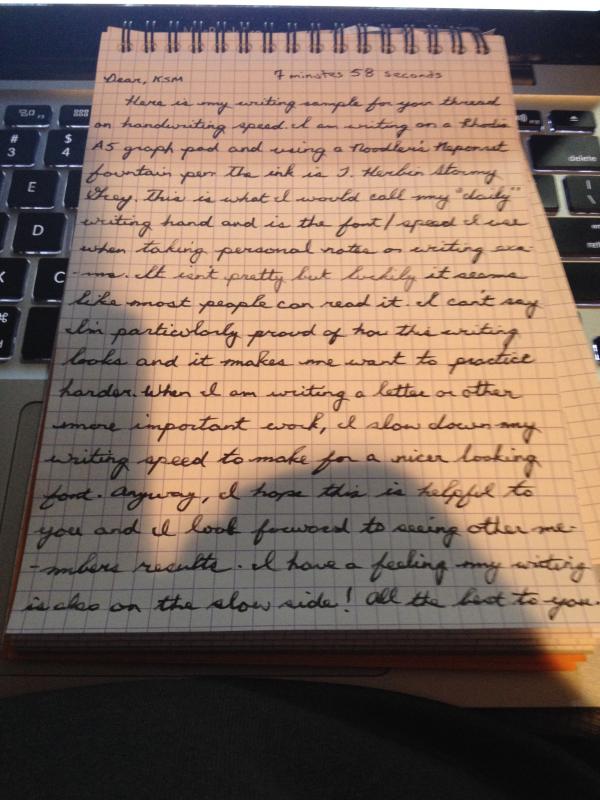 Dear, KSM
7 minutes 58 seconds
Here is my writing sample for your thread
on handwriting speed. I am writing on a Rhodia
A5 graph pad and using a Noodler's Neponset
fountain pen the ink is J. Herbin Stormy
Grey. This is what I would call my "daily"
writing hand and is the font/speed I use
when taking personal notes or writing exa-
-ms. It isn't pretty but luckily it seems
like most people can read it. I can't say
I'm particularly proud of how this writing
looks and it makes me want to practice
harder. When I am writing a letter or other
more important work, I slow down my
writing speed to make for a nicer looking
font. Anyway, I hope this is helpful to
you and I look forward to seeing other me-
-mbers results. I have a feeling my writing
is also on the slow side! All the best to you.
#
3
$
4
E
D
C
delete